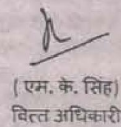 ( एम. के. सिंह)
वित्त अधिकारी